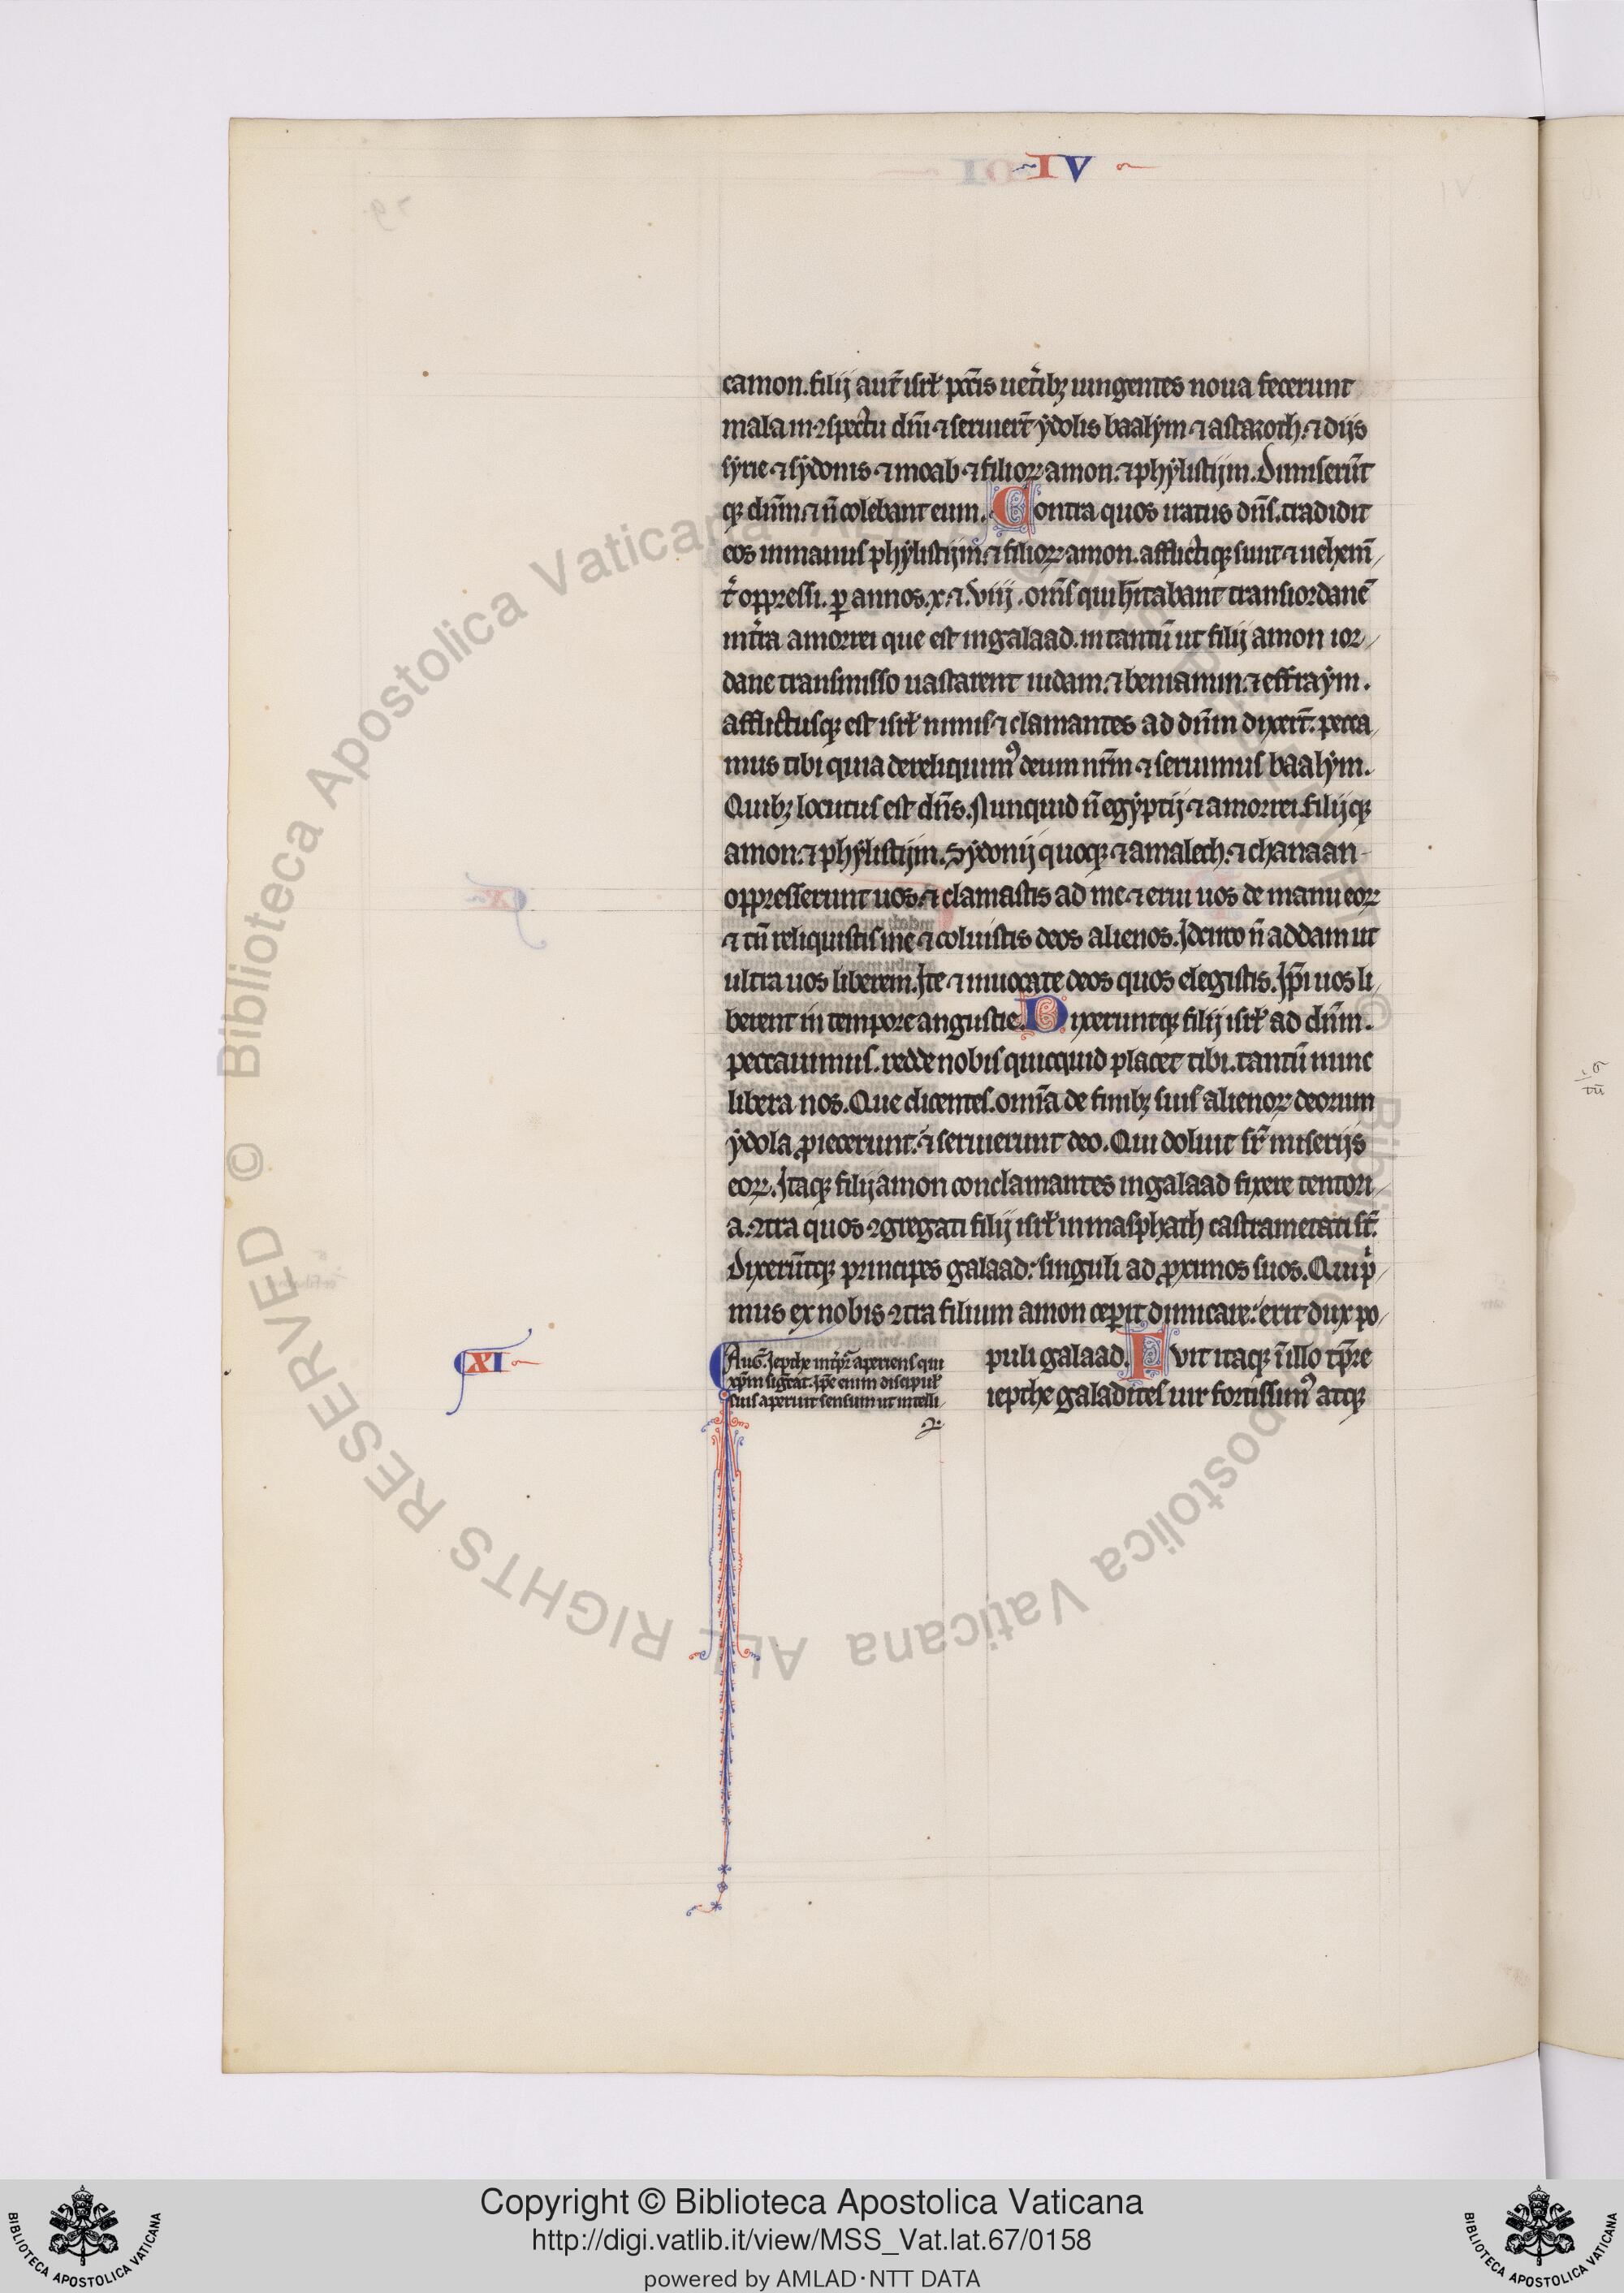 IV
camon. filij aut̄ isrł pcc̄is uet̄ibꝫ iungentes noua fecerunt
mala in ꝯspectu dn̄i ⁊ seruiert̄ ydolis baalym ⁊ astaroth. ⁊ dijs
syrie ⁊ sydonis ⁊ moab ⁊ filioꝝ amon. ⁊ phylistijm. Dimiserūt
qꝫ dn̄m. ⁊ n̄ colebant eum. Contra quos iratus dn̄s. tradidit
eos in manus phylistijm. ⁊ filioꝝ amon. afflictiqꝫ sunt ⁊ uehem̄
t̄ oppressi. ꝑ annos .x. ⁊ .viij. om̄s qui h̄itabant trans iordanē
in t̄ra amorrei que est in galaad. in tantū ut filij amon ior
dane transmisso uastarent iudam. ⁊ beniamin. ⁊ effraym.
afflictusqꝫ est isrł nimis ⁊ clamantes ad dn̄m dixert̄. pecca
mus tibi quia dereliquimꝰ deum nr̄m ⁊ seruimus baalym.
Quibꝫ locutus est dn̄s. Nunquid n̄ egyptij ⁊ amorrei. filijqꝫ
amon. ⁊ phylistijm. Sydonij quoqꝫ ⁊ amalech. ⁊ chanaan
oppresserunt uos. ⁊ clamastis ad me ⁊ erui uos de manu eoꝝ
⁊ tn̄ reliquistis me ⁊ coluistis deos alienos. Idcirco n̄ addam ut
ultra uos liberem. Ite ⁊ inuocate deos quos elegistis. Ip̄i uos li
berent in tempore angustie. Dixeruntqꝫ filij isrł ad dn̄m.
peccauimus. redde nobis quicquid placet tibi. tantū nunc
libera nos. Que dicentes. om̄ia de finibꝫ suis alienoꝝ deorum
ydola ꝓiecerunt. ⁊ seruierunt deo. Qui doluit sr̄ miserijs
eoꝝ. Itaqꝫ filij amon conclamantes in galaad fixere tentori
a. ꝯtra quos ꝯgregati filij isrł in masphath castrametati st̄.
Dixerūtqꝫ principes galaad. singuli ad ꝓximos suos. Qui pͥ
mus ex nobis ꝯtra filium amon ceperit dimicare. erit dux po
puli galaad. Fvit itaqꝫ ī illo tp̄re
iepthe galadites uir fortissimꝰ atqꝫ
XI
Auḡ. Iepthe int̄pr̄ aperiens qui
xp̄m sig̅t̅. Ip̄e enim discipul̄
suis aperuit sensum ut intelli
© Biblioteca Apostolica Vaticana ALL RIGHTS RESERVED
Copyright © Biblioteca Apostolica Vaticana
http://digi.vatlib.it/view/MSS_Vat.lat.67/0158
powered by AMLAD·NTT DATA
BIBLIOTECA APOSTOLICA VATICANA
BIBLIOTECA APOSTOLICA VATICANA